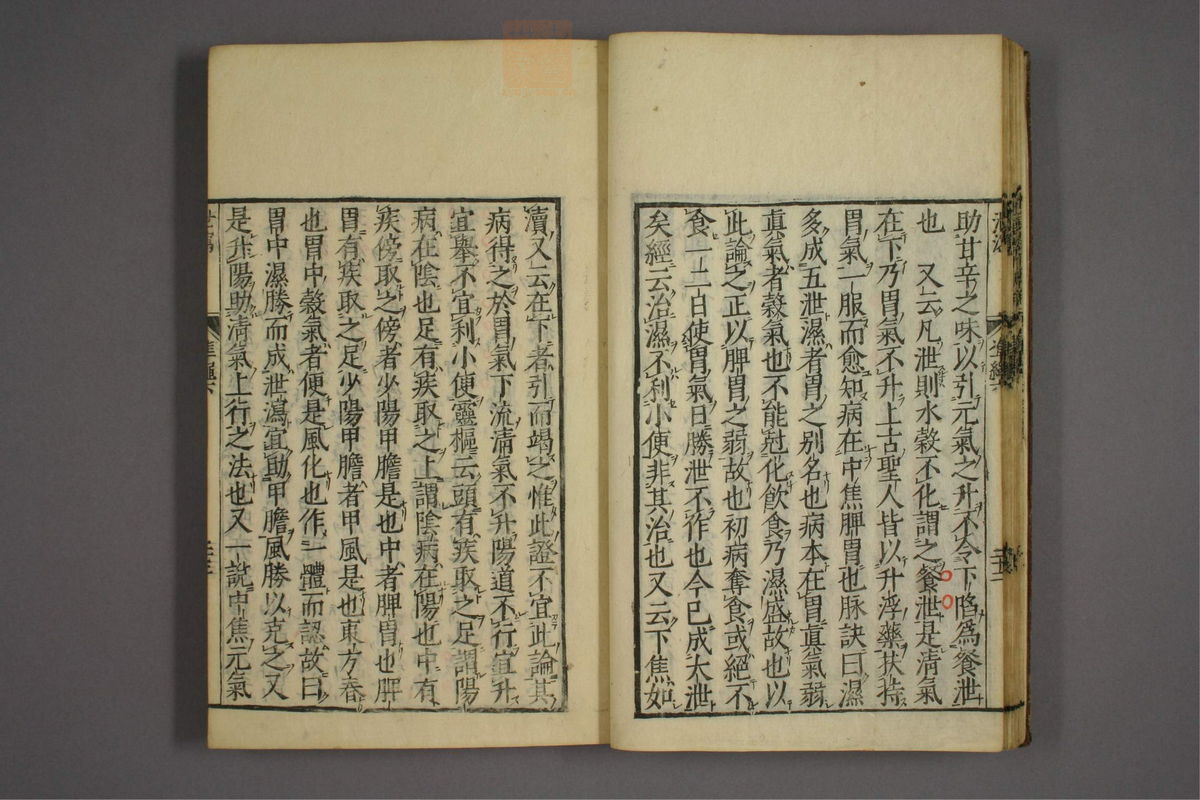 助甘辛之味以引元氣之升不令下陷為飧泄
也　又云凡泄則水穀不化謂之飧泄是清氣
在下乃胃氣不升上古聖人皆以升浮藥扶持
胃氣一服而愈知病在中焦脾胃也脉訣曰濕
多成五泄濕者胃之别名也病本在胃眞氣弱
眞氣者穀氣也不能尅化飲食乃濕盛故也以
此論之正以脾胃之弱故也初病奪食或絕不
食一二日使胃氣日勝泄不作也今已成大泄
矣經云治濕不利小便非其治也又云下焦如
瀆又云在下者引而竭之惟此證不宜此論其
病得之於胃氣下流清氣不升陽道不行宜升
宜舉不宜利小便靈樞云頭有疾取之足謂陽
病在陰也足有疾取之上謂陰病在陽也中有
疾傍取之傍者少陽甲膽是也中者脾胃也脾
胃有疾取之足少陽甲膽者甲風是也東方春
也胃中穀氣者便是風化也作一體而認故曰
胃中濕勝而成泄瀉宜助甲膽風勝以克之又
是升陽助清氣上行之法也又一說中焦元氣